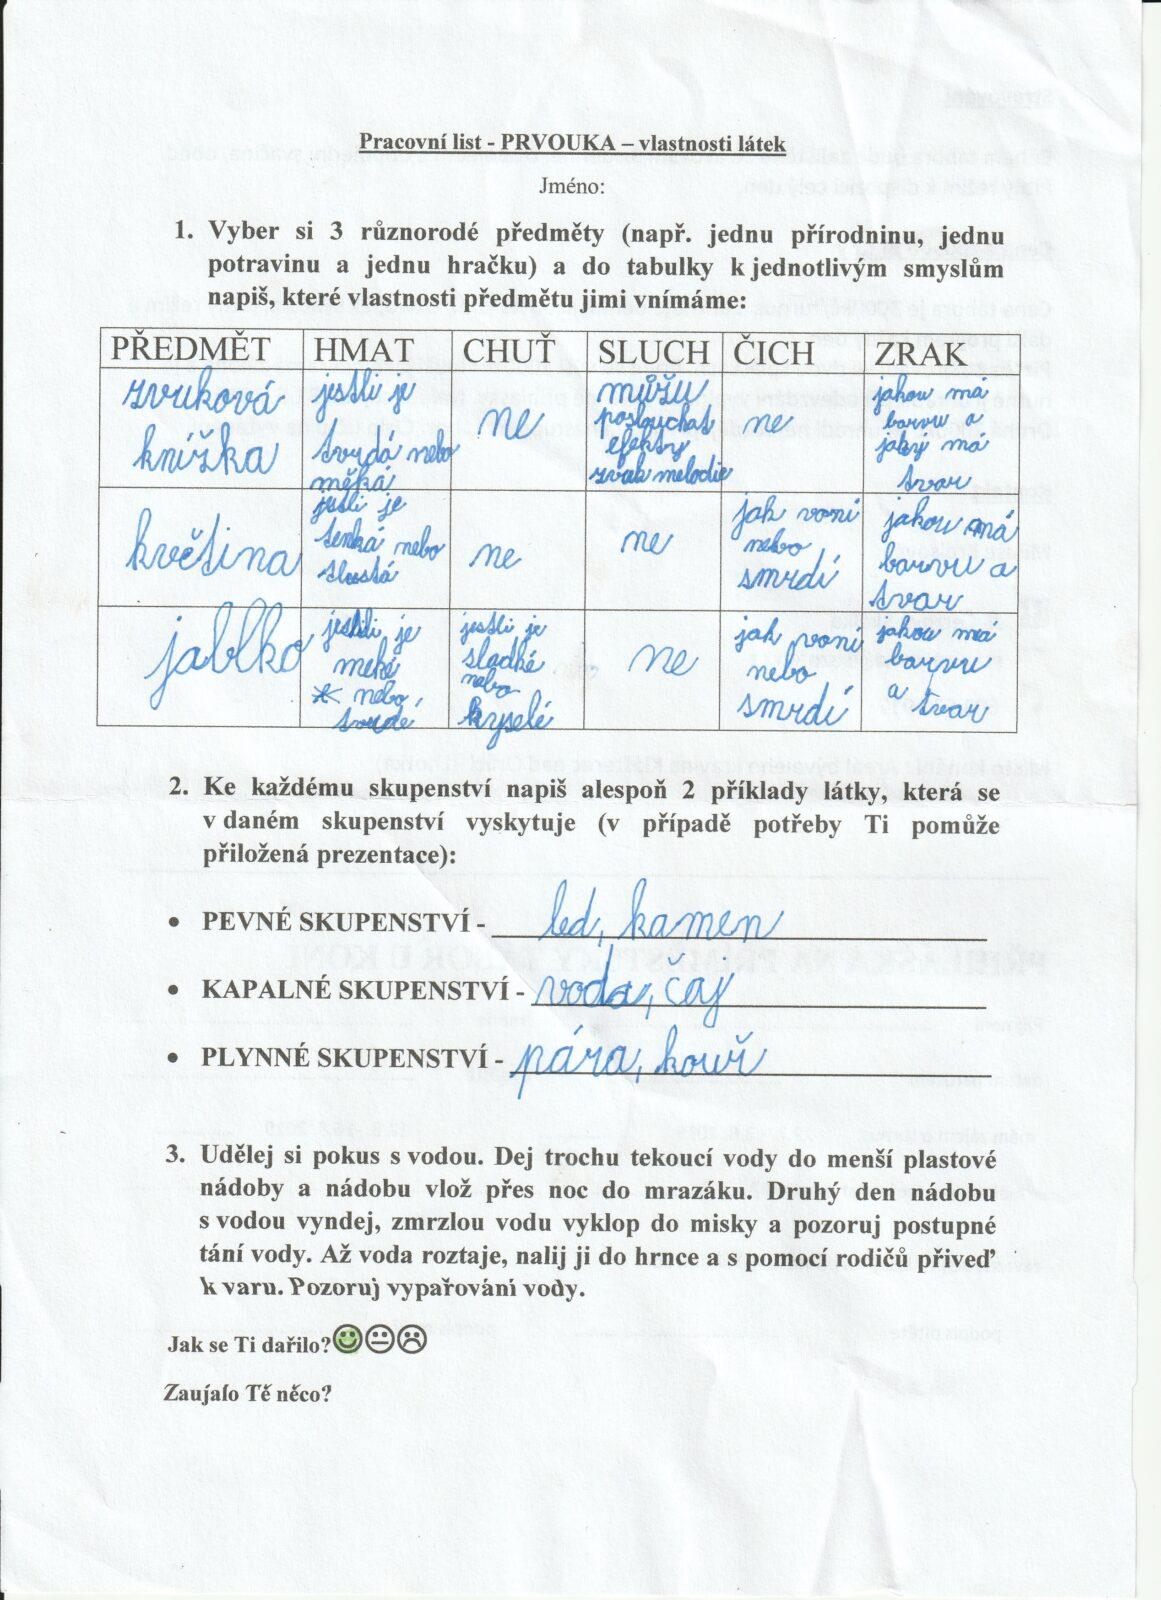 Pracovní list - PRVOUKA – vlastnosti látek
Jméno:
1. Vyber si 3 různorodé předměty (např. jednu přírodninu, jednu
potravinu a jednu hračku) a do tabulky k jednotlivým smyslům
napiš, které vlastnosti předmětu jimi vnímáme:
PŘEDMĚT HMAT CHUŤ SLUCH ČICH ZRAK
zvuková
knížka
jestli je
tvrdá nebo
měká
ne
můžu
poslouchat
efekty
zvuk melodie
ne
jakou má
barvu a
jaký má
tvar
květina
jestli je
tenká nebo
tlustá
ne
ne
jak voní
nebo
smrdí
jakou má
barvu a
tvar
jablko
jestli je
meké
nebo
tvrdé
jestli je
sladké
nebo
kyselé
ne
jak voní
nebo
smrdí
jakou má
barvu
a tvar
2. Ke každému skupenství napiš alespoň 2 příklady látky, která se
v daném skupenství vyskytuje (v případě potřeby Ti pomůže
přiložená prezentace):
• PEVNÉ SKUPENSTVÍ - led, kamen
• KAPALNÉ SKUPENSTVÍ - voda, čaj
• PLYNNÉ SKUPENSTVÍ - pára, kouř
3. Udělej si pokus s vodou. Dej trochu tekoucí vody do menší plastové
nádoby a nádobu vlož přes noc do mrazáku. Druhý den nádobu
s vodou vyndej, zmrzlou vodu vyklop do misky a pozoruj postupné
tání vody. Až voda roztaje, nalij ji do hrnce a s pomocí rodičů přiveď
k varu. Pozoruj vypařování vody.
Jak se Ti dařilo?
Zaujalo Tě něco?